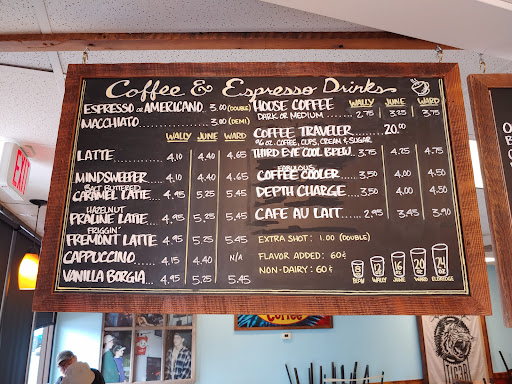 Coffee & Espresso Drinks
ESPRESSO OR AMERICANO. 3.00 (DOUBLE)
MACCHIATO.......... 3.00 (DEMI)
WALLY JUNE WARD
LATTE............. 4.10 4.40 4.65
MINDSWEEPER........ 4.10 4.40 4.65
SALT BUTTERED
CARAMEL LATTE.... 4.95 5.25 5.45
HAZELNUT
PRALINE LATTE.... 4.95 5.25 5.45
FRIGGIN'
FREMONT LATTE.. 4.95 5.25 5.45
CAPPUCCINO........ 4.15 4.40 N/A
VANILLA BORGIA.... 4.95 5.25 5.45
HOUSE COFFEE WALLY JUNE WARD
DARK OR MEDIUM....... 2.75 3.25 3.75
COFFEE TRAVELER...... 20.00
96 OZ. COFFEE, CUPS, CREAM & SUGAR
THIRD EYE COOL BREW.. 3.75 4.25 4.75
FABULOUS
COFFEE COOLER...... 3.50 4.00 4.50
DEPTH CHARGE..... 3.50 4.00 4.50
CAFE AU LAIT...... 2.95 3.45 3.90
EXTRA SHOT: 1.00 (DOUBLE)
FLAVOR ADDED: 60¢
NON-DAIRY: 60¢
8 OZ 12 OZ 16 OZ 20 OZ 24 OZ
BEAV WALLY JUNE WARD ELDRIDGE
Coffee